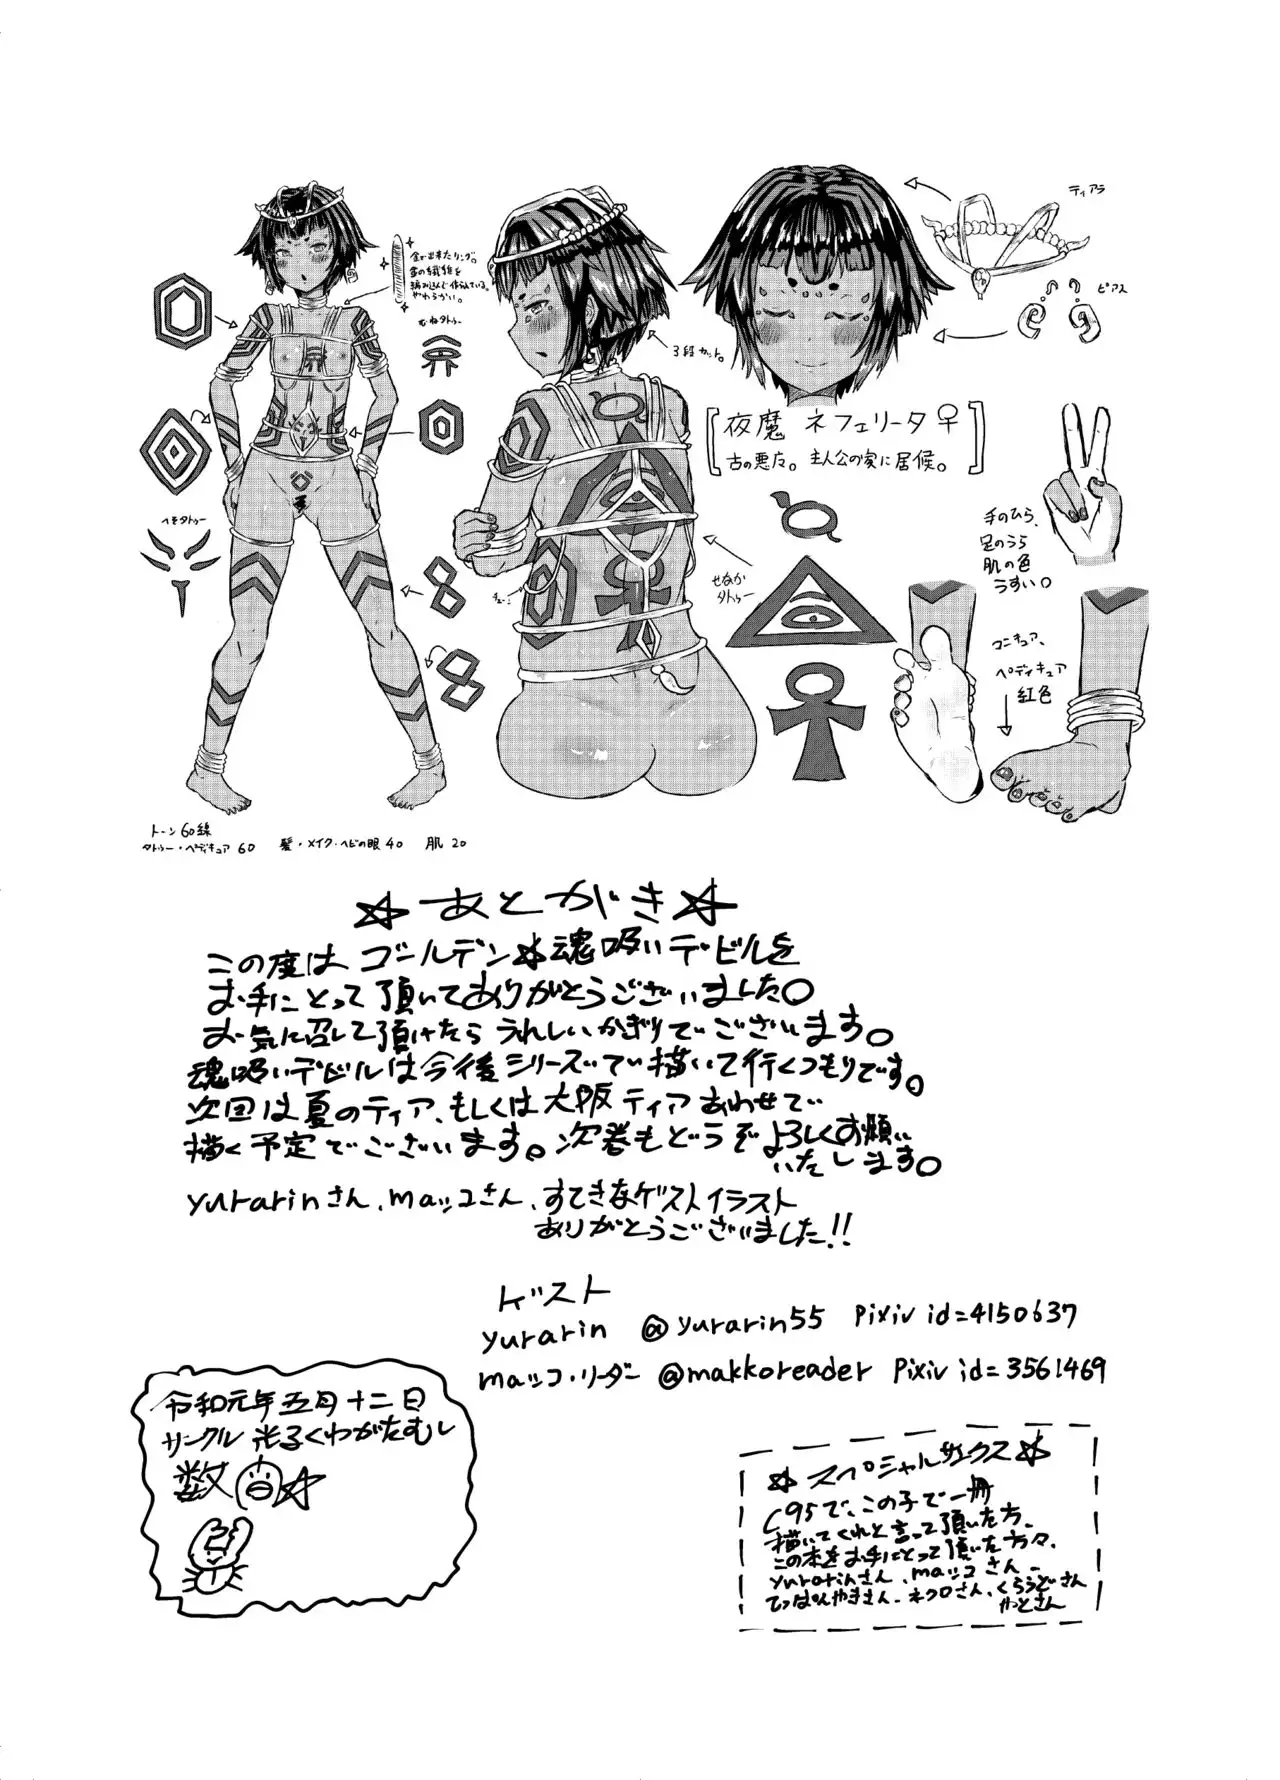 ティアラ
金で出来たリング。
やわらかい。
むねタトゥー
ピアス
3段カット。
夜魔 ネフェリータ♀
古の悪魔。主人公の家に居候。
へそタトゥー
手のひら、
足のうら
肌の色
うすい。
せなか
タトゥー
マニキュア、
ペディキュア
紅色
トーン60線
タトゥー・ペディキュア 60 髪・メイク・ヘビの眼 40 肌 20
☆あとがき☆
この度はゴールデン☆魂吸いデビルを
お手にとって頂いてありがとうございました。
お気に召して頂けたらうれしいかぎりでございます。
魂吸いデビルは今後シリーズで描いて行くつもりです。
次回は夏のティア、もしくは大阪ティアあわせで
描く予定でございます。次巻もどうぞよろしくお願い
いたします。
yurarinさん、mаッコさん、すてきなゲストイラスト
ありがとうございました!!
ゲスト
yurarin @yurarin55 Pixiv id=4150637
maッコ・リーダー @makkoreader Pixiv id=3561469
令和元年五月十二日
サークル 光子くわがたむし
数
☆スペシャルサンクス☆
C95で、この子で一冊
描いてくれと言って頂いた方、
この本をお手にとって頂いた方々、
yurarinさん、maッコさん、
てっぱんやきさん、ネクロさん、くろうどさん
やっとさん